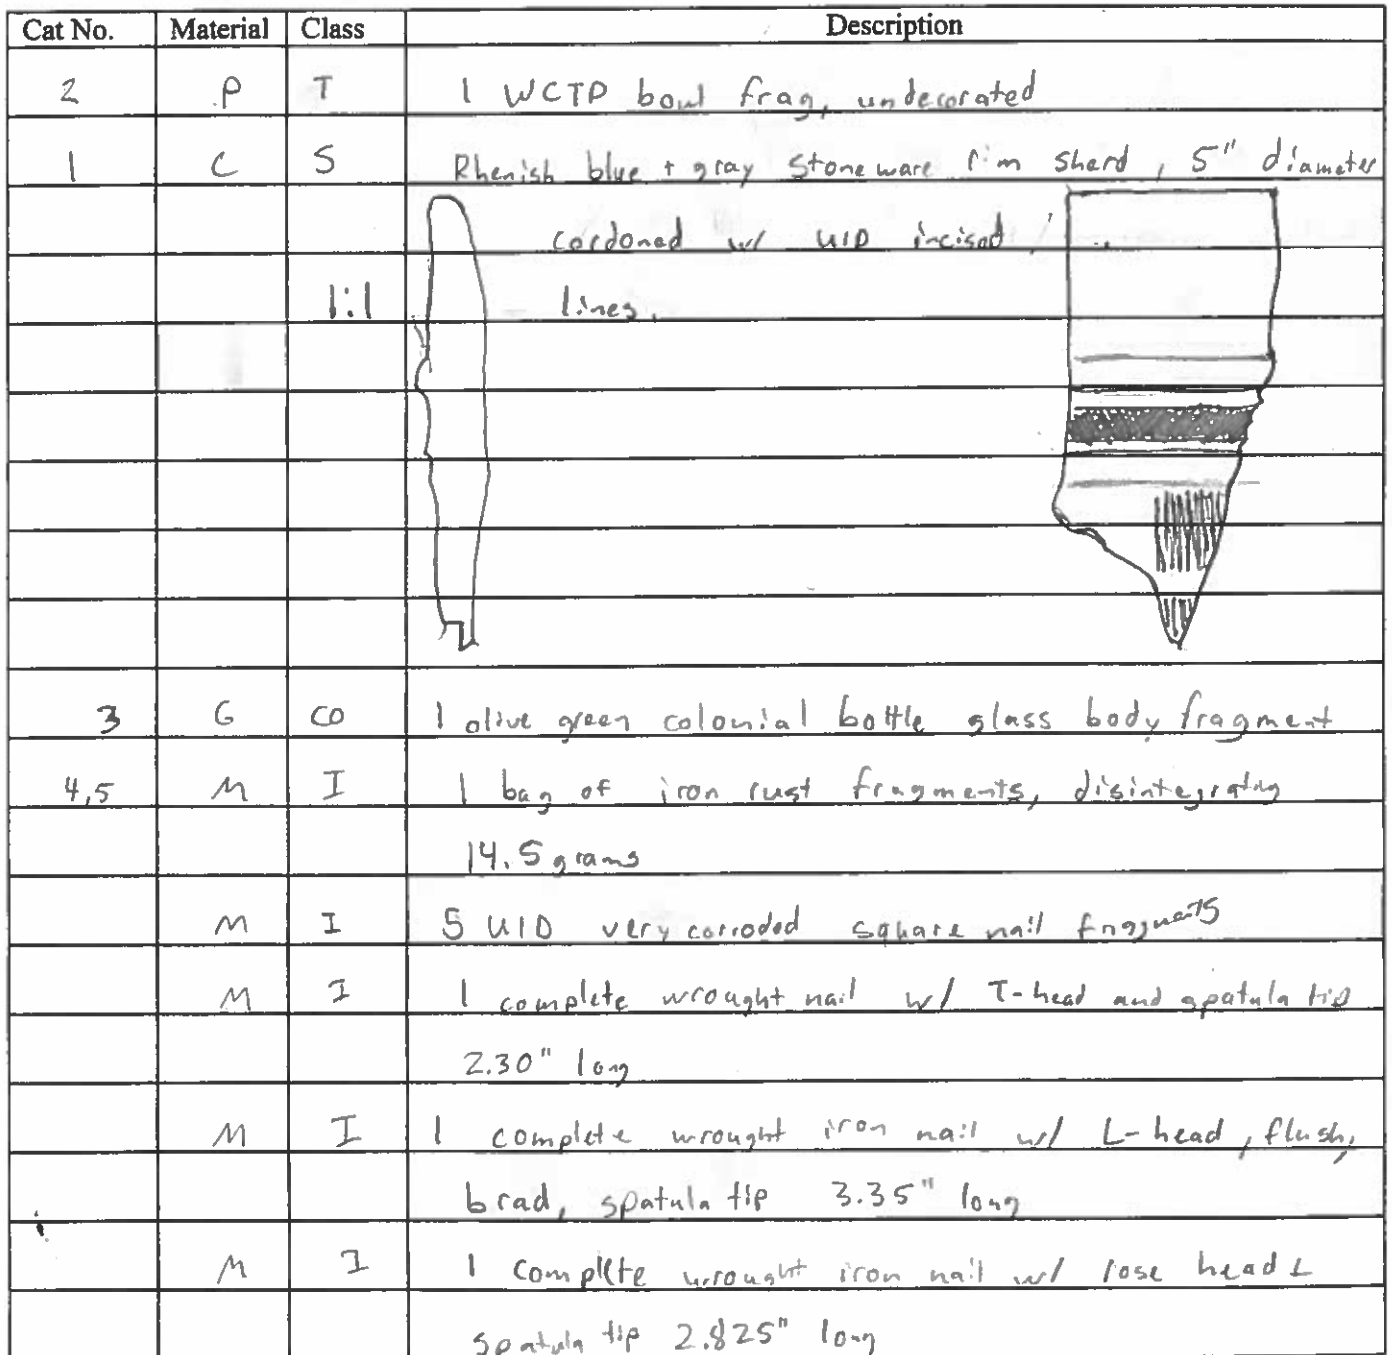 Cat No. Material Class Description
2 P T 1 WCTP bowl frag, undecorated
1 C S Rhenish blue + gray stoneware rim sherd, 5" diameter
cordoned w/ UID incised
1:1 lines.
3 G CO 1 olive green colonial bottle glass body fragment
4,5 M I 1 bag of iron rust fragments, disintegrating
14.5 grams
M I 5 UID very corroded square nail fragments
M I 1 complete wrought nail w/ T-head and spatula tip
2.30" long
M I 1 complete wrought iron nail w/ L-head, flush,
brad, spatula tip 3.35" long
M I 1 complete wrought iron nail w/ rose head &
spatula tip 2.825" long